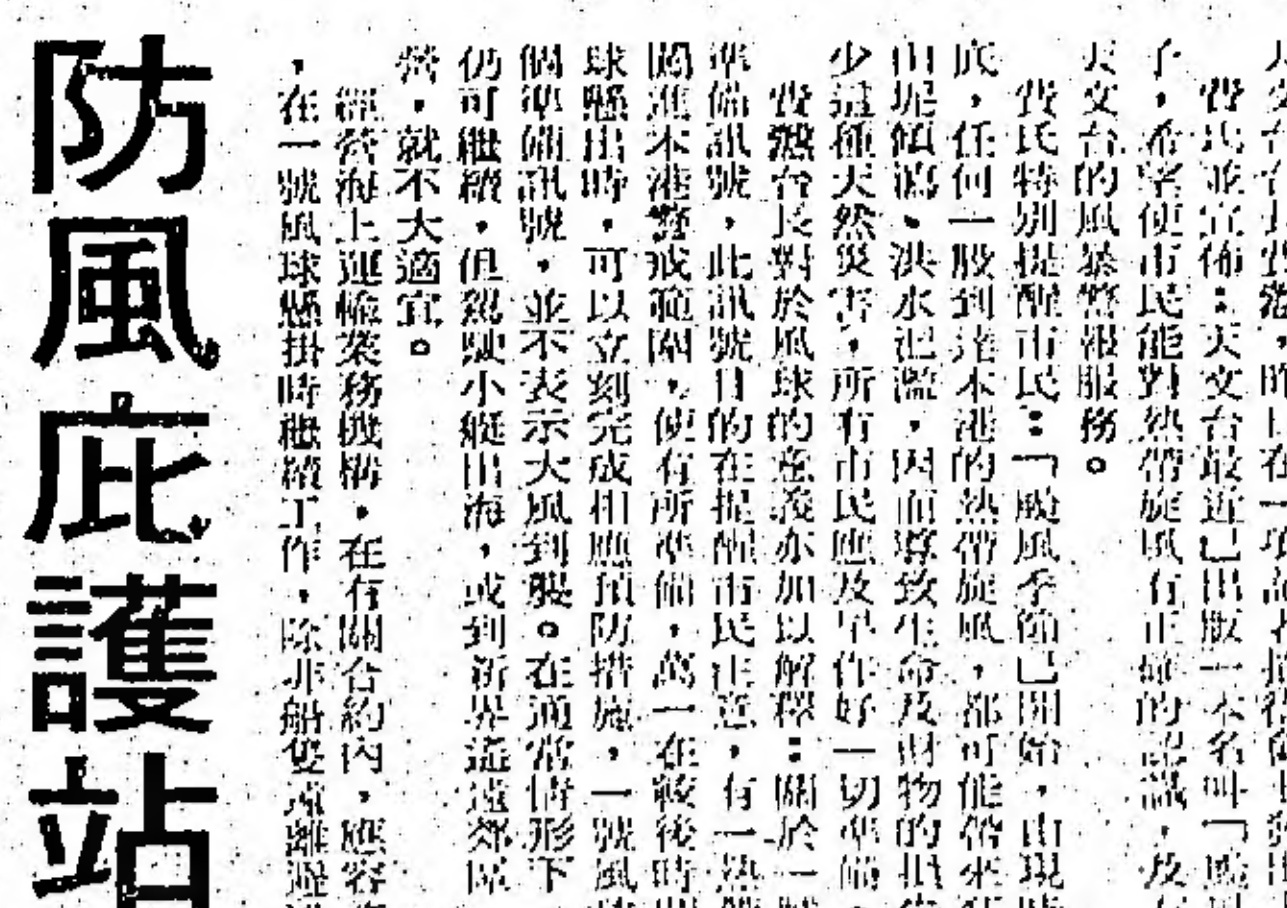 費氏並宣佈：天文台最近已出版一本名叫「颱風
子，希望使市民能對熱帶旋風有正確的認識，及
天文台的風暴警報服務。
費氏特別提醒市民：「颱風季節已開始，由現時
底，任何一股到達本港的熱帶旋風，都可能帶來
山坭傾瀉、洪水氾濫，因而導致生命及財物的損
少這種天然災害，所有市民應及早作好一切準備
費戆台長對於風球的意義亦加以解釋：關於一號
準備訊號，此訊號目的在提醒市民注意，有一熱帶
闖進本港警戒範圍，使有所準備，萬一在較後時
球懸出時，可以立刻完成相應預防措施，一號風
個準備訊號，並不表示大風到襲。在通常情形下
仍可繼續，但駕駛小艇出海，或到新界遙遠郊區
營，就不大適宜。
經營海上運輸業務機構，在有關合約內，應容
，在一號風球懸掛時繼續工作，除非船隻遠離避
防風庇護站